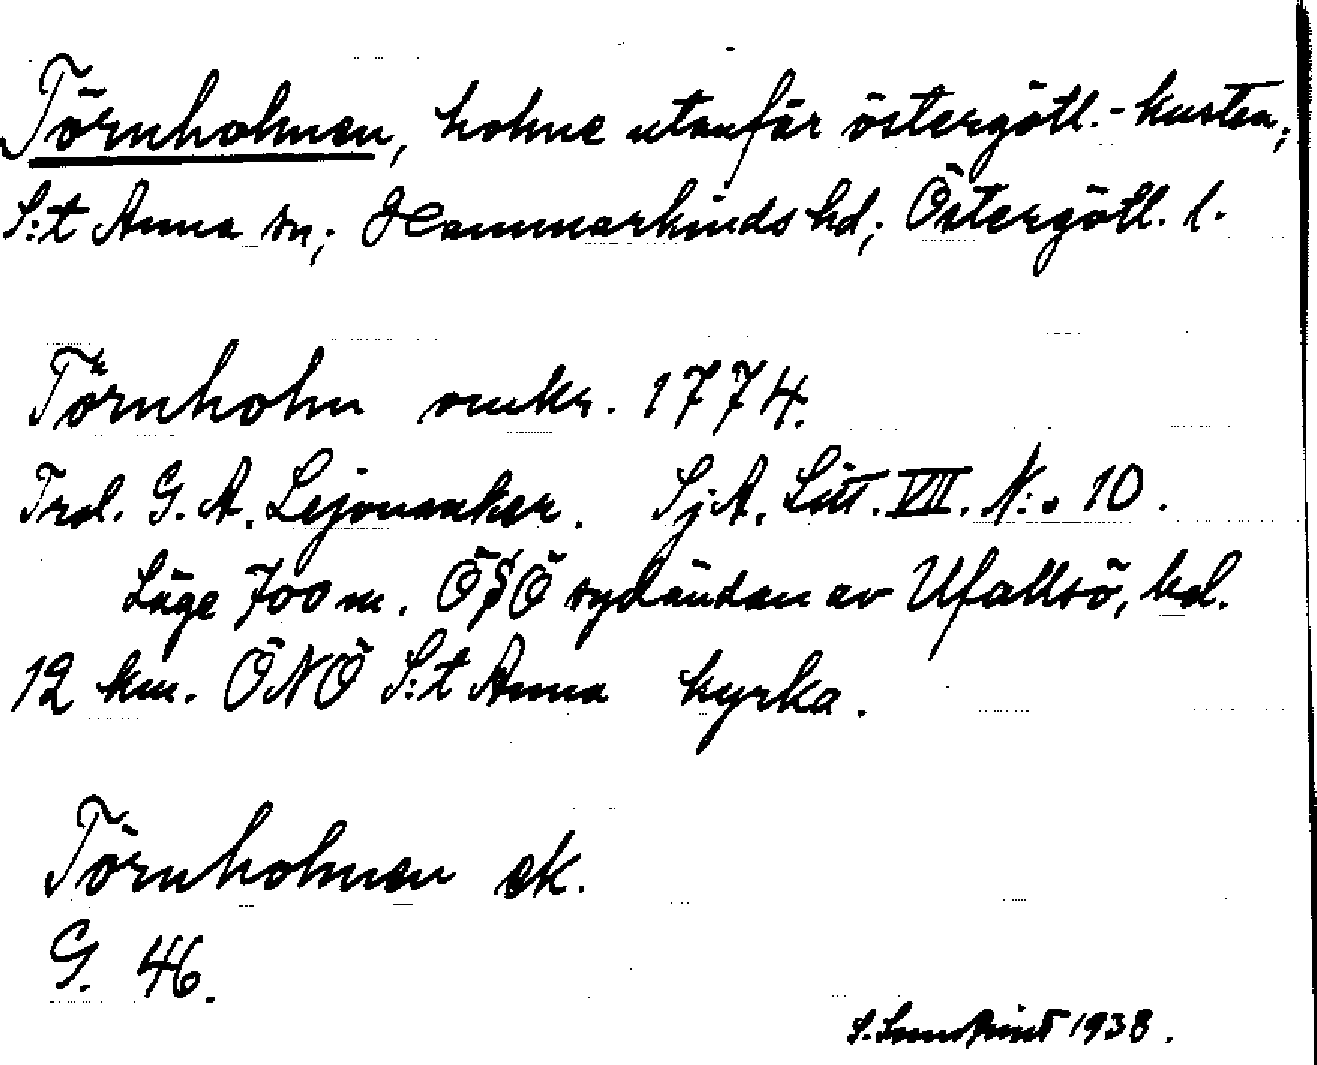 Törnholmen, holme utanför östergötl.-kusten;
S:t Anna sn; Hammarkinds hd; Östergötl. l.
Törnholm omkr. 1774.
Trol. G. A. Lejonanker. SjA. Litt. VII. N:o 10.
Läge 700 m. ÖSÖ sydändan av Ufallsö, bel.
12 km. ÖNÖ S:t Anna kyrka.
Törnholmen ek.
G. 46.
S. 1938.